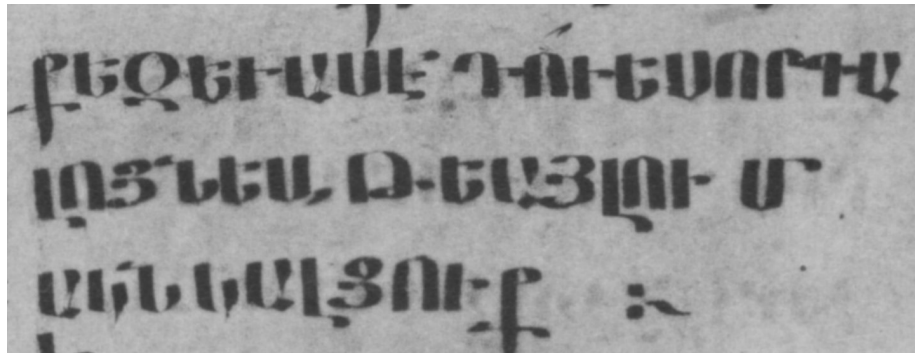 քեզ եւ ասէ դո՛ւ ես որ գա
լոցն ես, թե այլում
ակն կալցուք ։